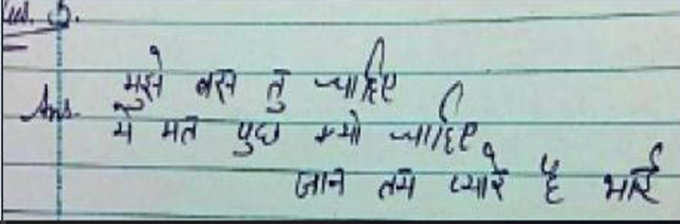 Ans. मुझे बस तु चाहिए
ये मत पुछ क्यो चाहिए
जान तमे प्यारे है भाई